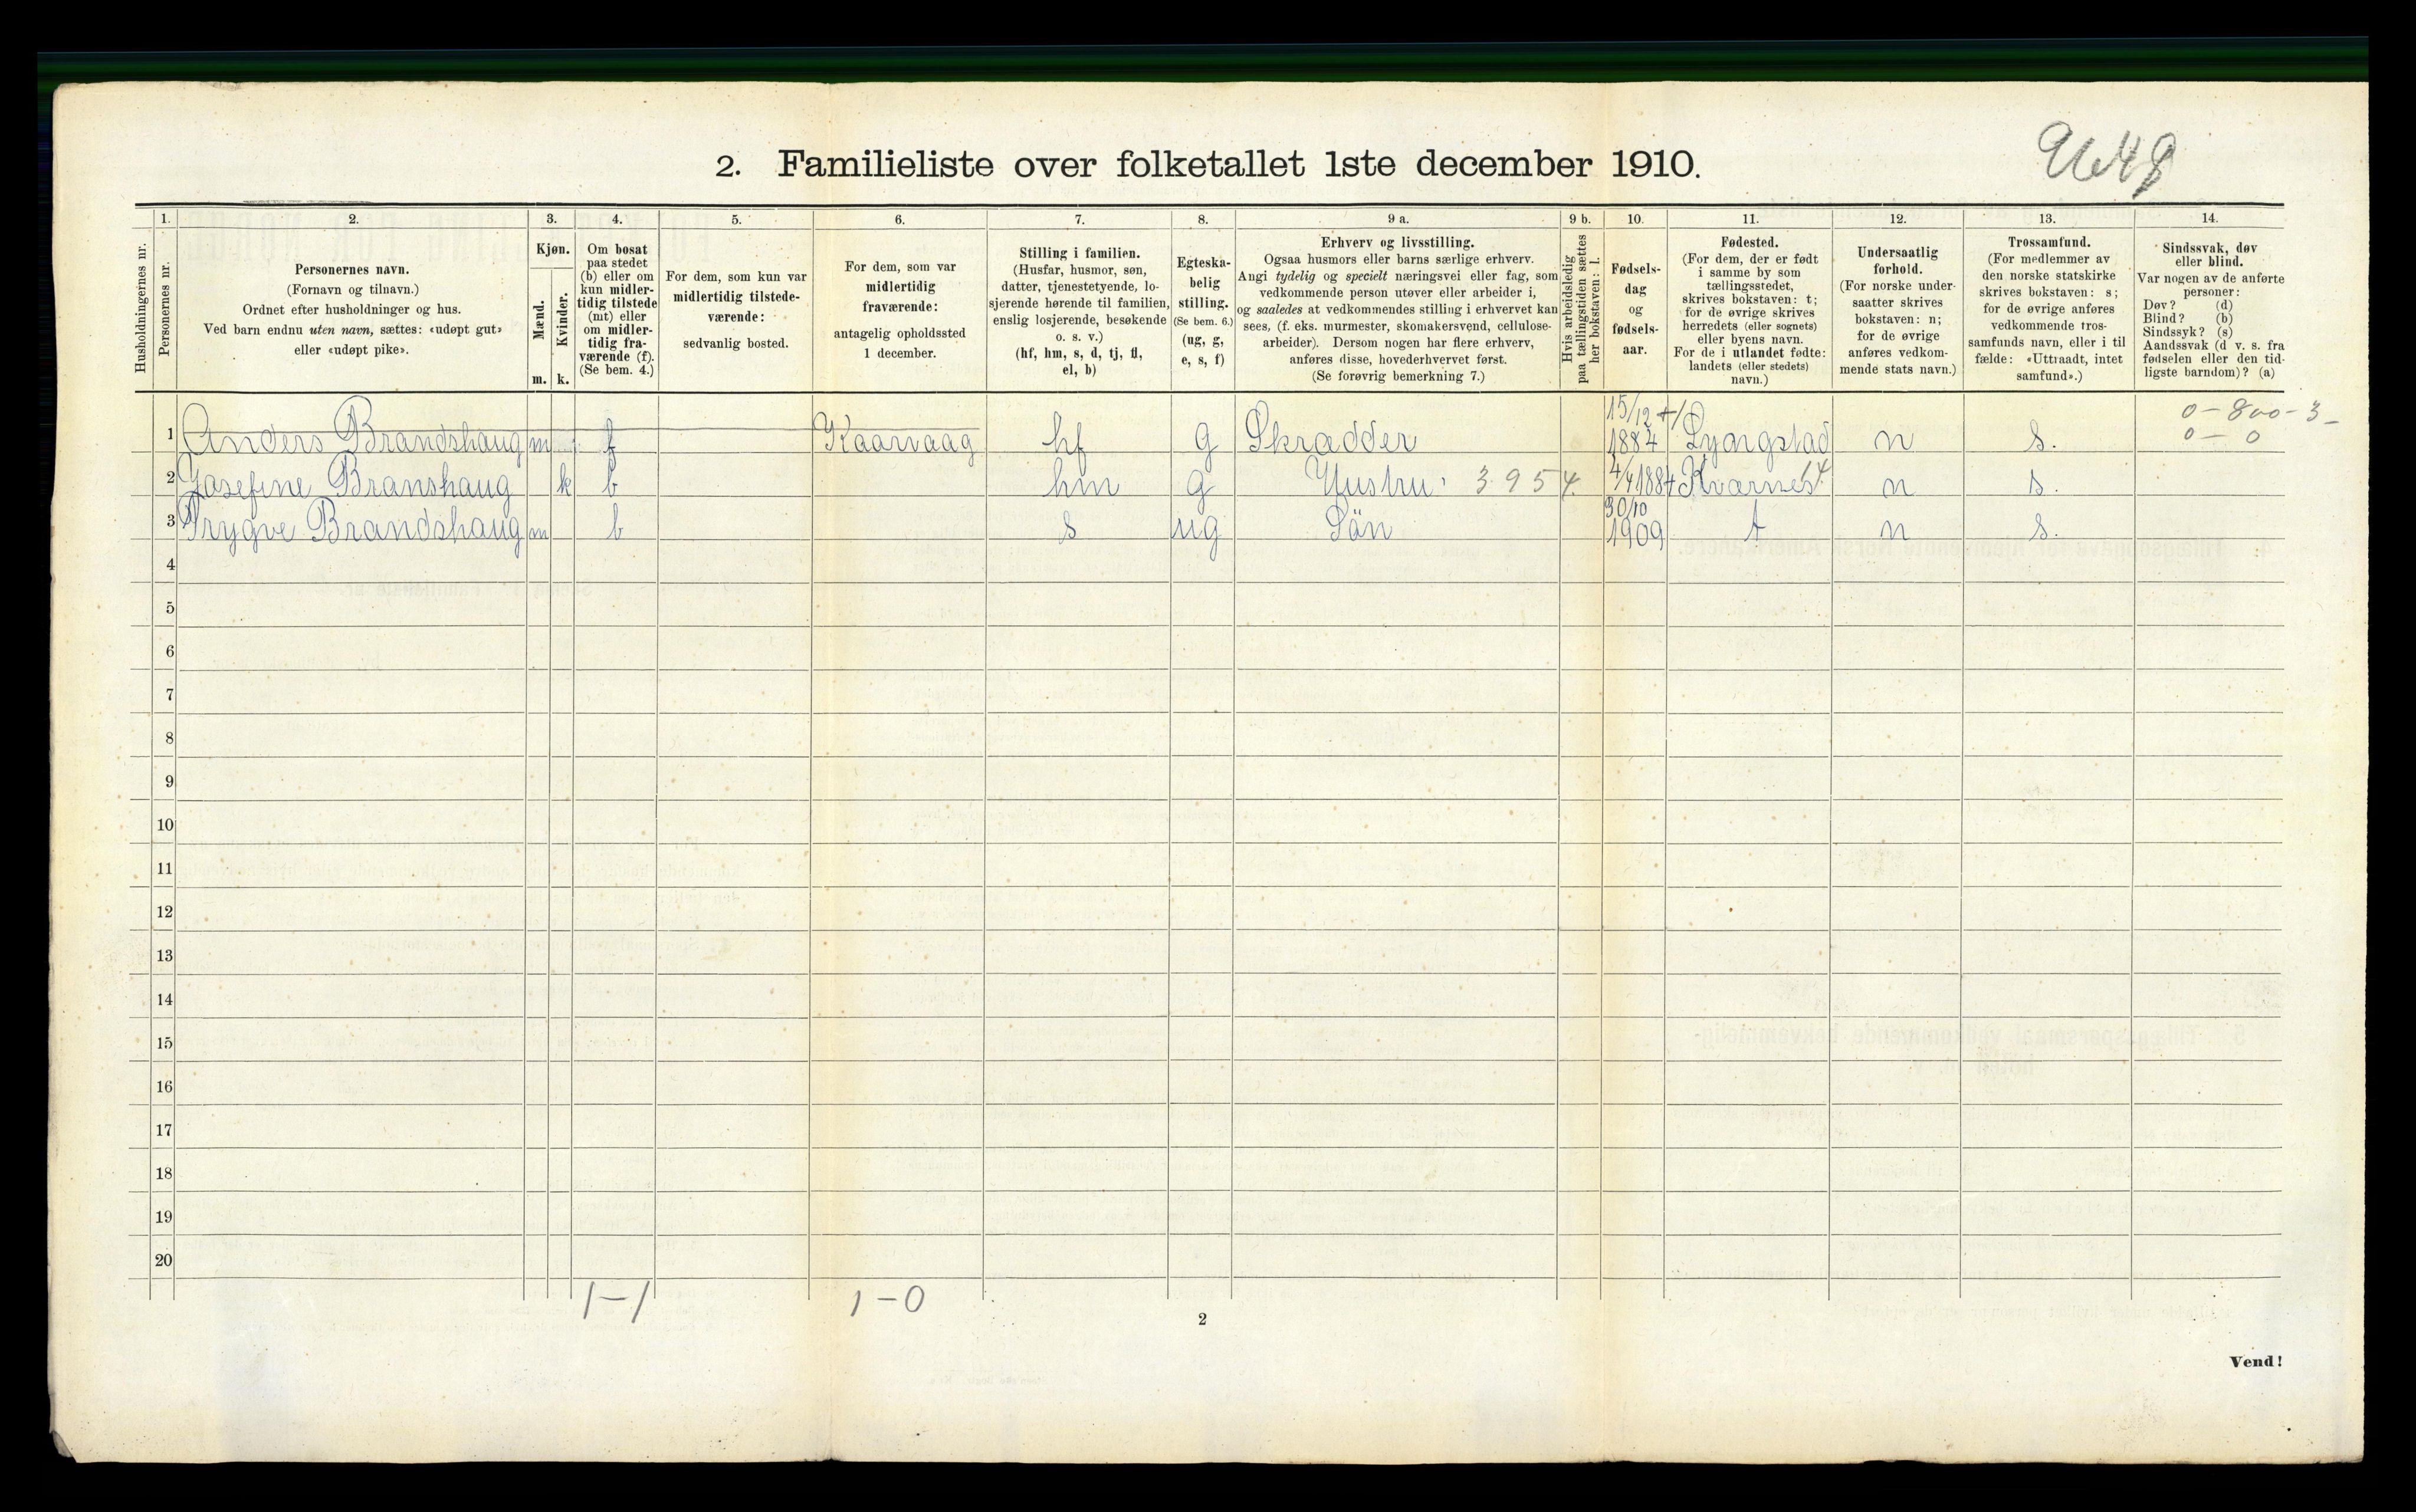 2. Familieliste over folketallet 1ste december 1910.
9648
Husholdningernes nr.
1.
Personernes nr.
2.
Personernes navn.
(Fornavn og tilnavn.)
Ordnet efter husholdninger og hus.
Ved barn endnu uten navn, sættes: «udøpt gut»
eller «udøpt pike».
3.
Kjøn.
Mænd.
Kvinder.
m. k.
4.
Om bosat
paa stedet
(b) eller om
kun midler-
tidig tilstede
(mt) eller
om midler-
tidig fra-
værende (f).
(Se bem. 4.)
5.
For dem, som kun var
midlertidig tilstede-
værende:
sedvanlig bosted.
6.
For dem, som var
midlertidig
fraværende:
antagelig opholdssted
1 december.
7.
Stilling i familien.
(Husfar, husmor, søn,
datter, tjenestetyende, lo-
sjerende hørende til familien,
enslig losjerende, besøkende
o. s. v.)
(hf, hm, s, d, tj, fl,
el, b)
8.
Egteska-
belig
stilling.
(Se bem. 6.)
(ug, g,
e, s, f)
9 a.
Erhverv og livsstilling.
Ogsaa husmors eller barns særlige erhverv.
Angi tydelig og specielt næringsvei eller fag, som
vedkommende person utøver eller arbeider i,
og saaledes at vedkommendes stilling i erhvervet kan
sees, (f. eks. murmester, skomakersvend, cellulose-
arbeider). Dersom nogen har flere erhverv,
anføres disse, hovederhvervet først.
(Se forøvrig bemerkning 7.)
9 b.
Hvis arbeidsledig
paa tællingstiden sættes
her bokstaven: l.
10.
Fødsels-
dag
og
fødsels-
aar.
11.
Fødested.
(For dem, der er født
i samme by som
tællingsstedet,
skrives bokstaven: t;
for de øvrige skrives
herredets (eller sognets)
eller byens navn.
For de i utlandet fødte:
landets (eller stedets)
navn.)
12.
Undersaatlig
forhold.
(For norske under-
saatter skrives
bokstaven: n;
for de øvrige
anføres vedkom-
mende stats navn.)
13.
Trossamfund.
(For medlemmer av
den norske statskirke
skrives bokstaven: s;
for de øvrige anføres
vedkommende tros-
samfunds navn, eller i til
fælde: «Uttraadt, intet
samfund».)
14.
Sindssvak, døv
eller blind.
Var nogen av de anførte
personer:
Døv? (d)
Blind? (b)
Sindssyk? (s)
Aandssvak (d v. s. fra
fødselen eller den tid-
ligste barndom)? (a)
1 Anders Brandshaug m f Kaarvaag hf g Skrædder 15/12 1884 Lyngstad n s. 0-800-3-
0-0
2 Josefine Branshaug k b hm g Hustru 3954. 4/4 1884 Kvarnes 14 n s.
3 Trygve Brandshaug m b s ug Sän 30/10 1909 t n s.
4
5
6
7
8
9
10
11
12
13
14
15
16
17
18
19
20
1-1 1-0
2
Vend!